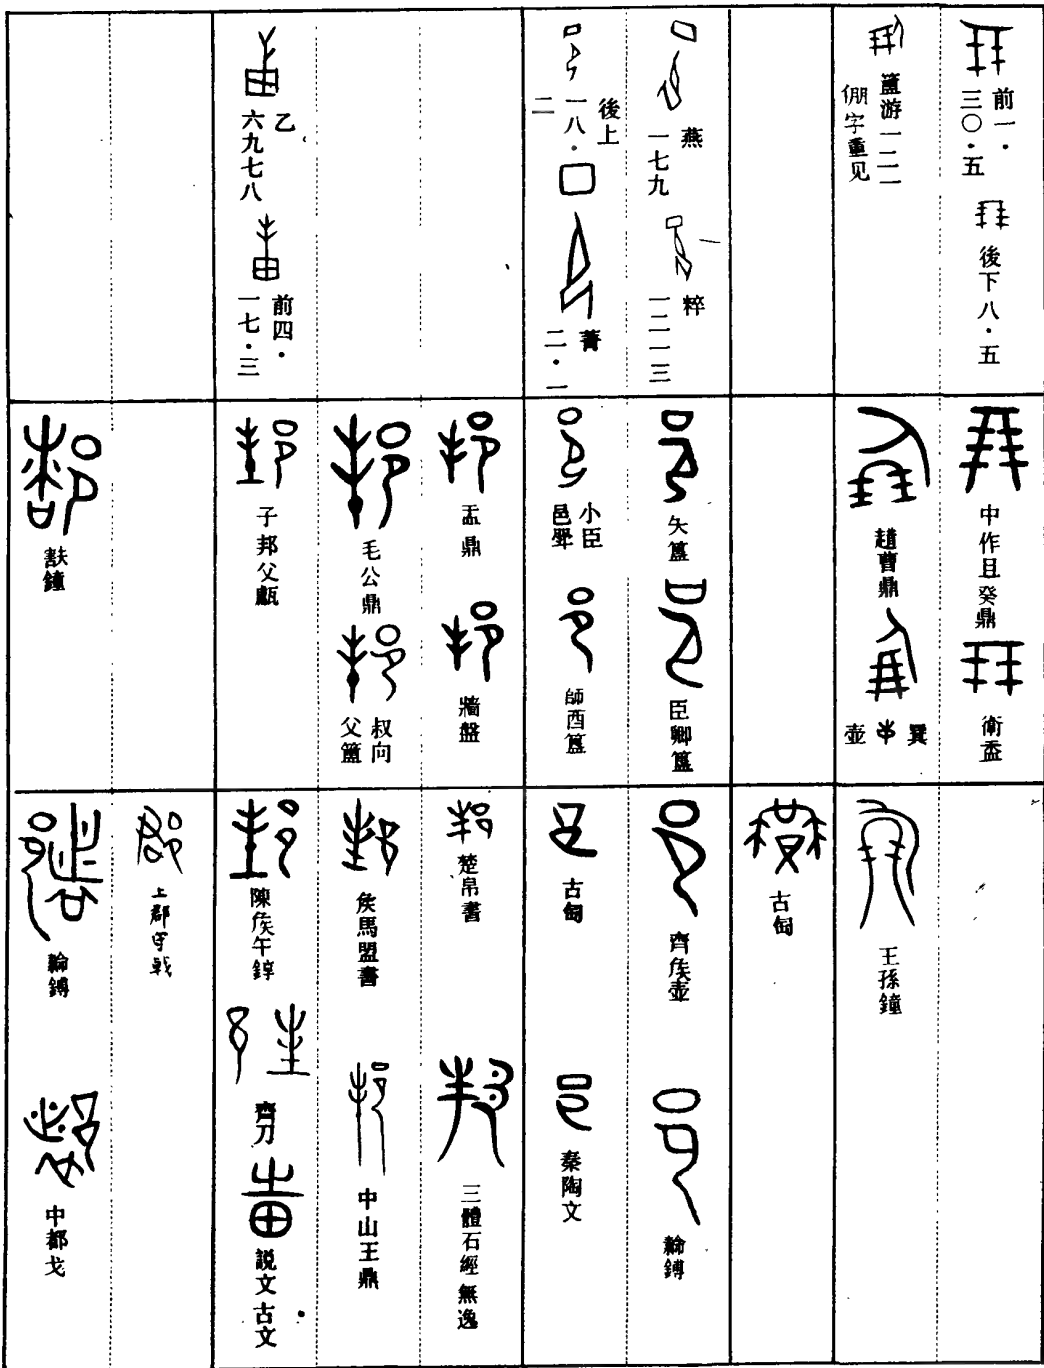 前一·
三〇·五
後下八·五
簠游一二一
倗字重见
燕
一七九
粹
一二一三
後上
一八·
二
菁
二·一
乙
六九七八
前四·
一七·三
中作且癸鼎
衛盉
趙曹鼎
矢簋
臣卿簋
小臣
邑斝
師酉簋
盂鼎
牆盤
毛公鼎
叔向
父簋
子邦父甗
㝬鐘
王孫鐘
古匋
齊侯壺
古匋
秦陶文
楚帛書
三體石經無逸
侯馬盟書
中山王鼎
陳侯午錞
齊刀
説文古文
上郡守戟
中都戈